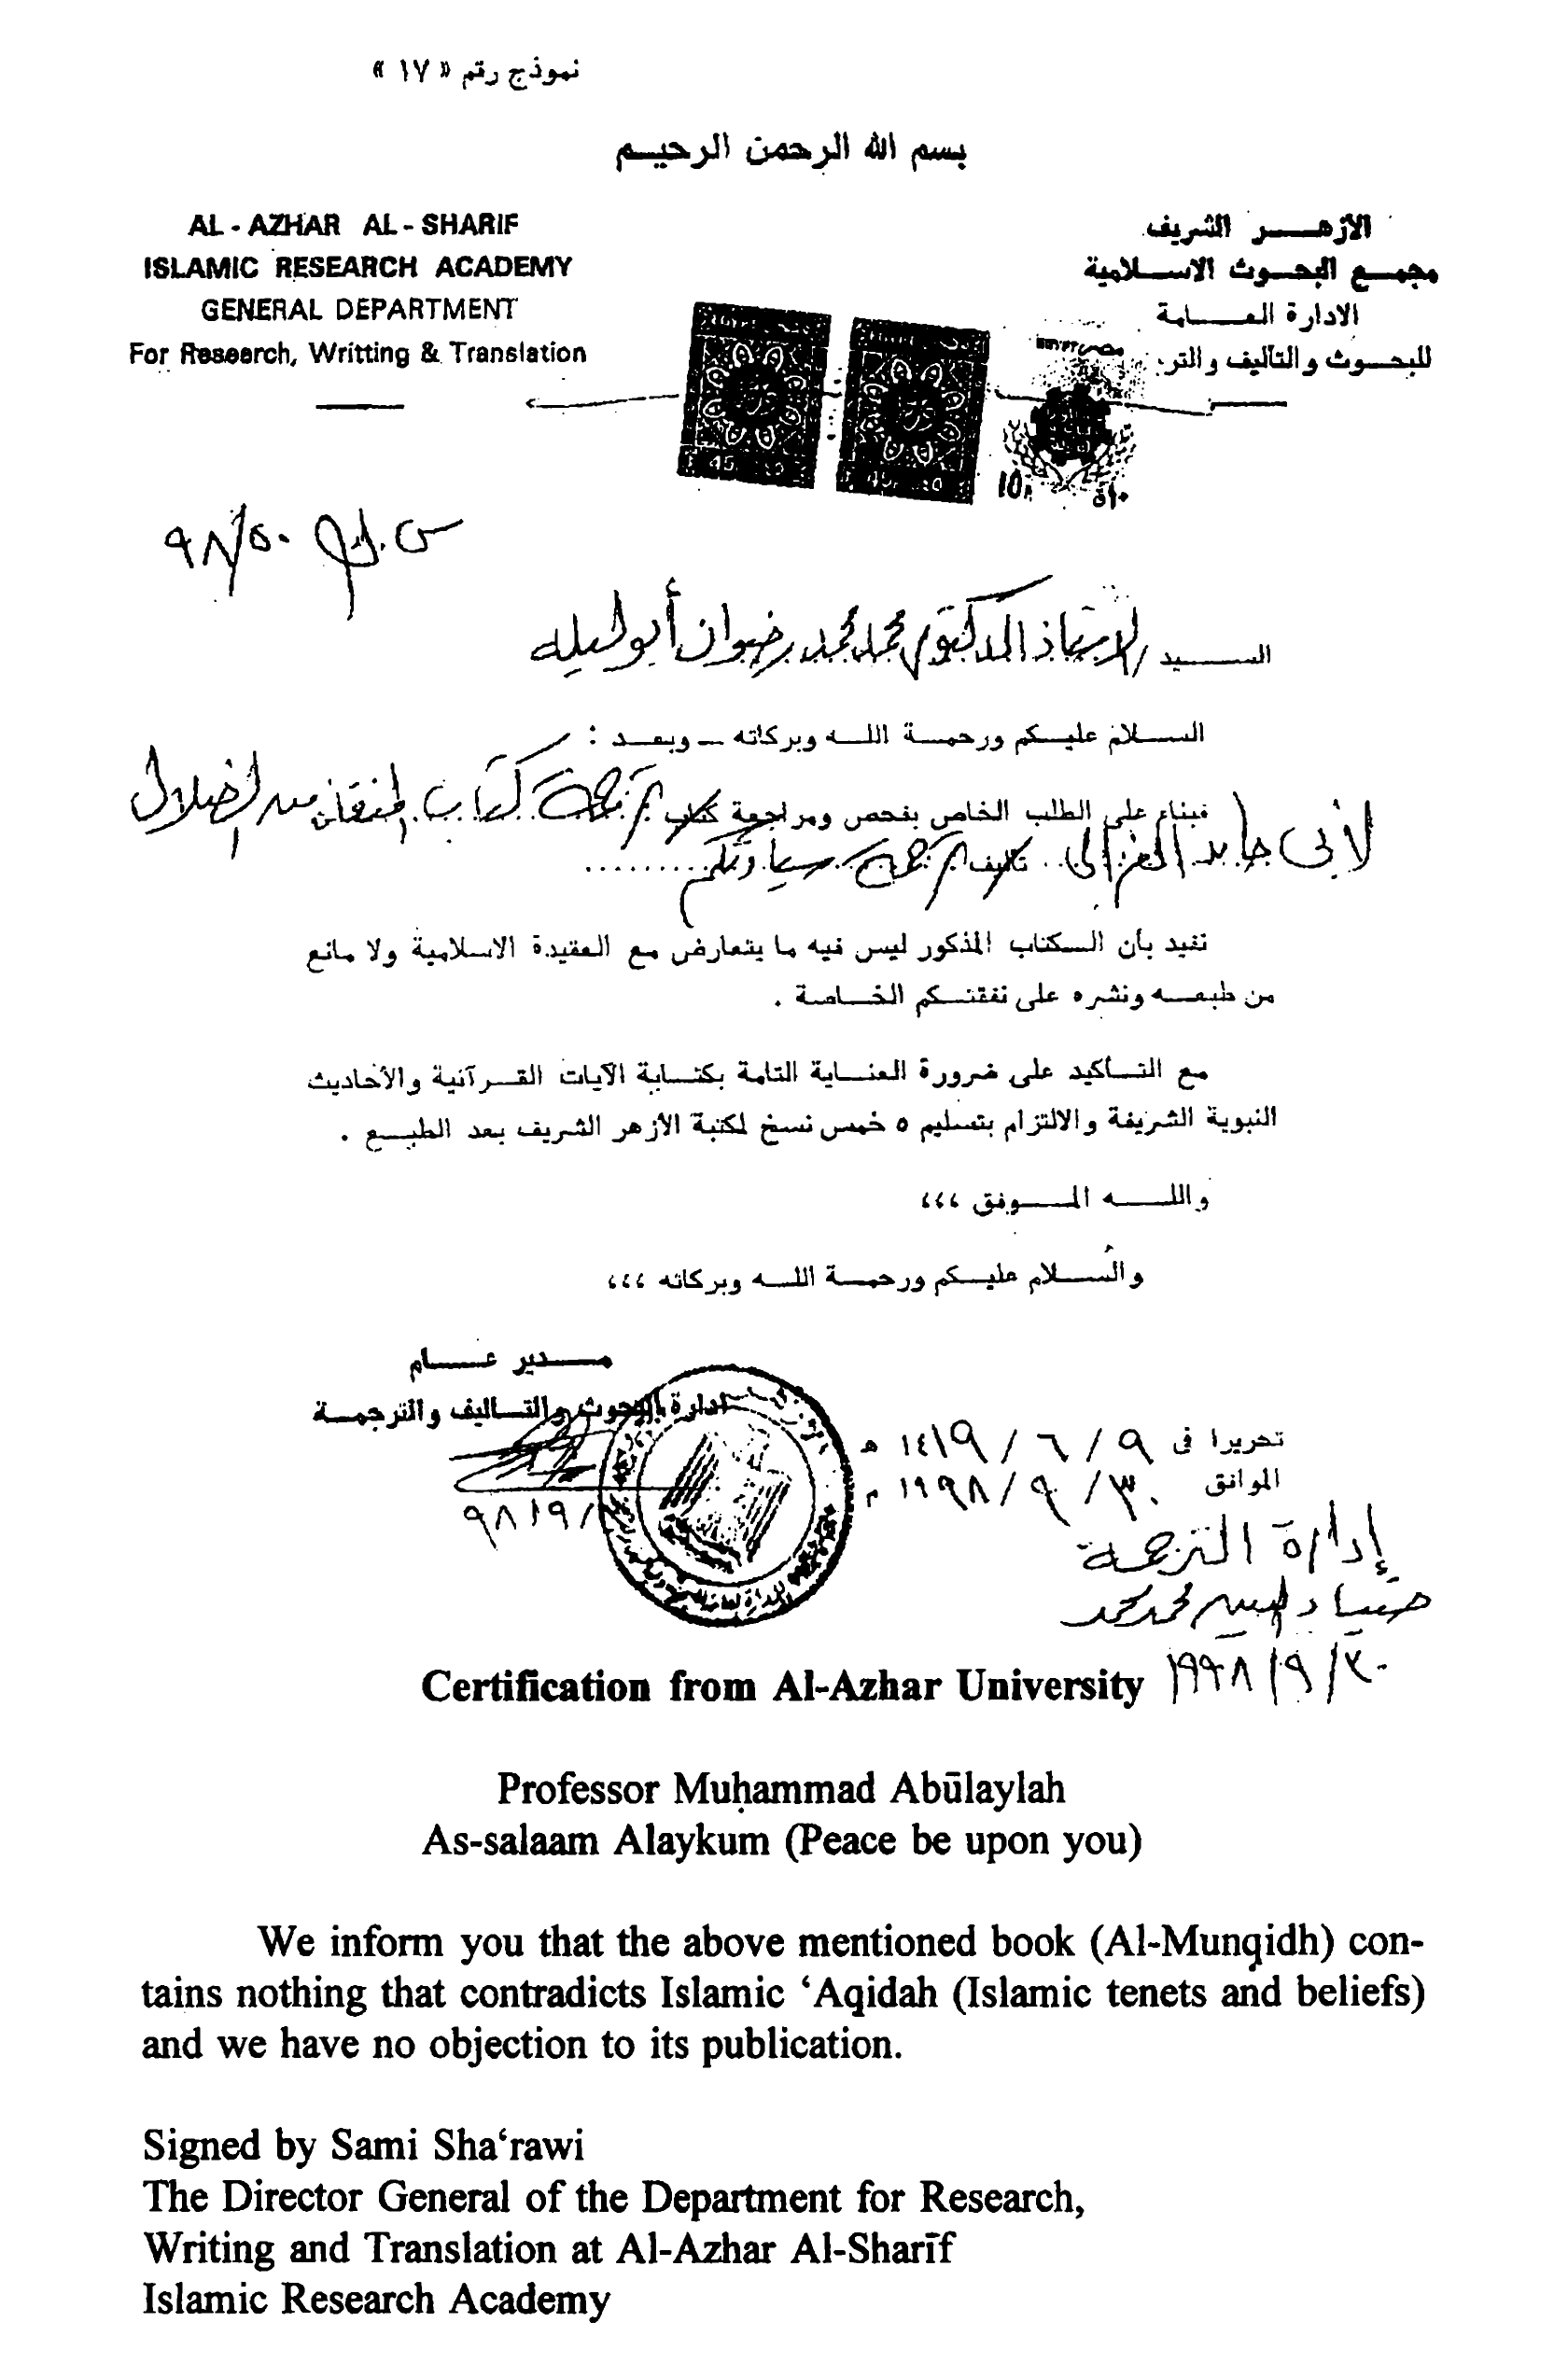 نموذج رقم « ١٧ »
بسم الله الرحمن الرحيم
AL - AZHAR AL - SHARIF
ISLAMIC RESEARCH ACADEMY
GENERAL DEPARTMENT
For Research, Writting & Translation
الازهر الشريف
مجمع البحوث الاسلامية
الادارة العامة
للبحوث والتأليف والتر
٩٨/٥٠
السيد / الاستاذ الدكتور محمد محمد رضوان أبو ليله
السلام عليكم ورحمة الله وبركاته ــ وبعد :
فبناء على الطلب الخاص بفحص ومراجعة كتاب ترجمة كتاب المنقذ من الضلال
لأبى حامد الغزالى تأليف ترجمة سيادتكم
نفيد بأن الكتاب المذكور ليس فيه ما يتعارض مع العقيدة الاسلامية ولا مانع
من طبعه ونشره على نفقتكم الخاصة .
مع التأكيد على ضرورة العناية التامة بكتابة الآيات القرآنية والأحاديث
النبوية الشريفة والالتزام بتسليم ٥ خمس نسخ لمكتبة الأزهر الشريف بعد الطبع .
والله الموفق ،،،
والسلام عليكم ورحمة الله وبركاته ،،،
مدير عام
ادارة البحوث والتأليف والترجمة
تحريرا فى ٩ / ٦ / ١٤١٩ هـ
الموافق ٣٠ / ٩ / ١٩٩٨ م
إدارة الترجمة
محمد محمد
٣٠ / ٩ / ١٩٩٨
Certification from Al-Azhar University
Professor Muḥammad Abūlaylah
As-salaam Alaykum (Peace be upon you)
We inform you that the above mentioned book (Al-Munqidh) con-
tains nothing that contradicts Islamic ‘Aqidah (Islamic tenets and beliefs)
and we have no objection to its publication.
Signed by Sami Sha‘rawi
The Director General of the Department for Research,
Writing and Translation at Al-Azhar Al-Sharīf
Islamic Research Academy